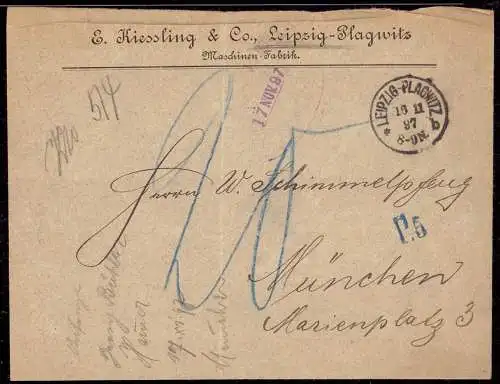 E. Kiessling & Co., Leipzig-Plagwitz
Maschinen-Fabrik.
54
17 NOV. 97
* LEIPZIG-PLAGWITZ b
16 11
97
8-9N.
20
Herrn W. Schimmelpfeng
P.5
München
Marienplatz 3